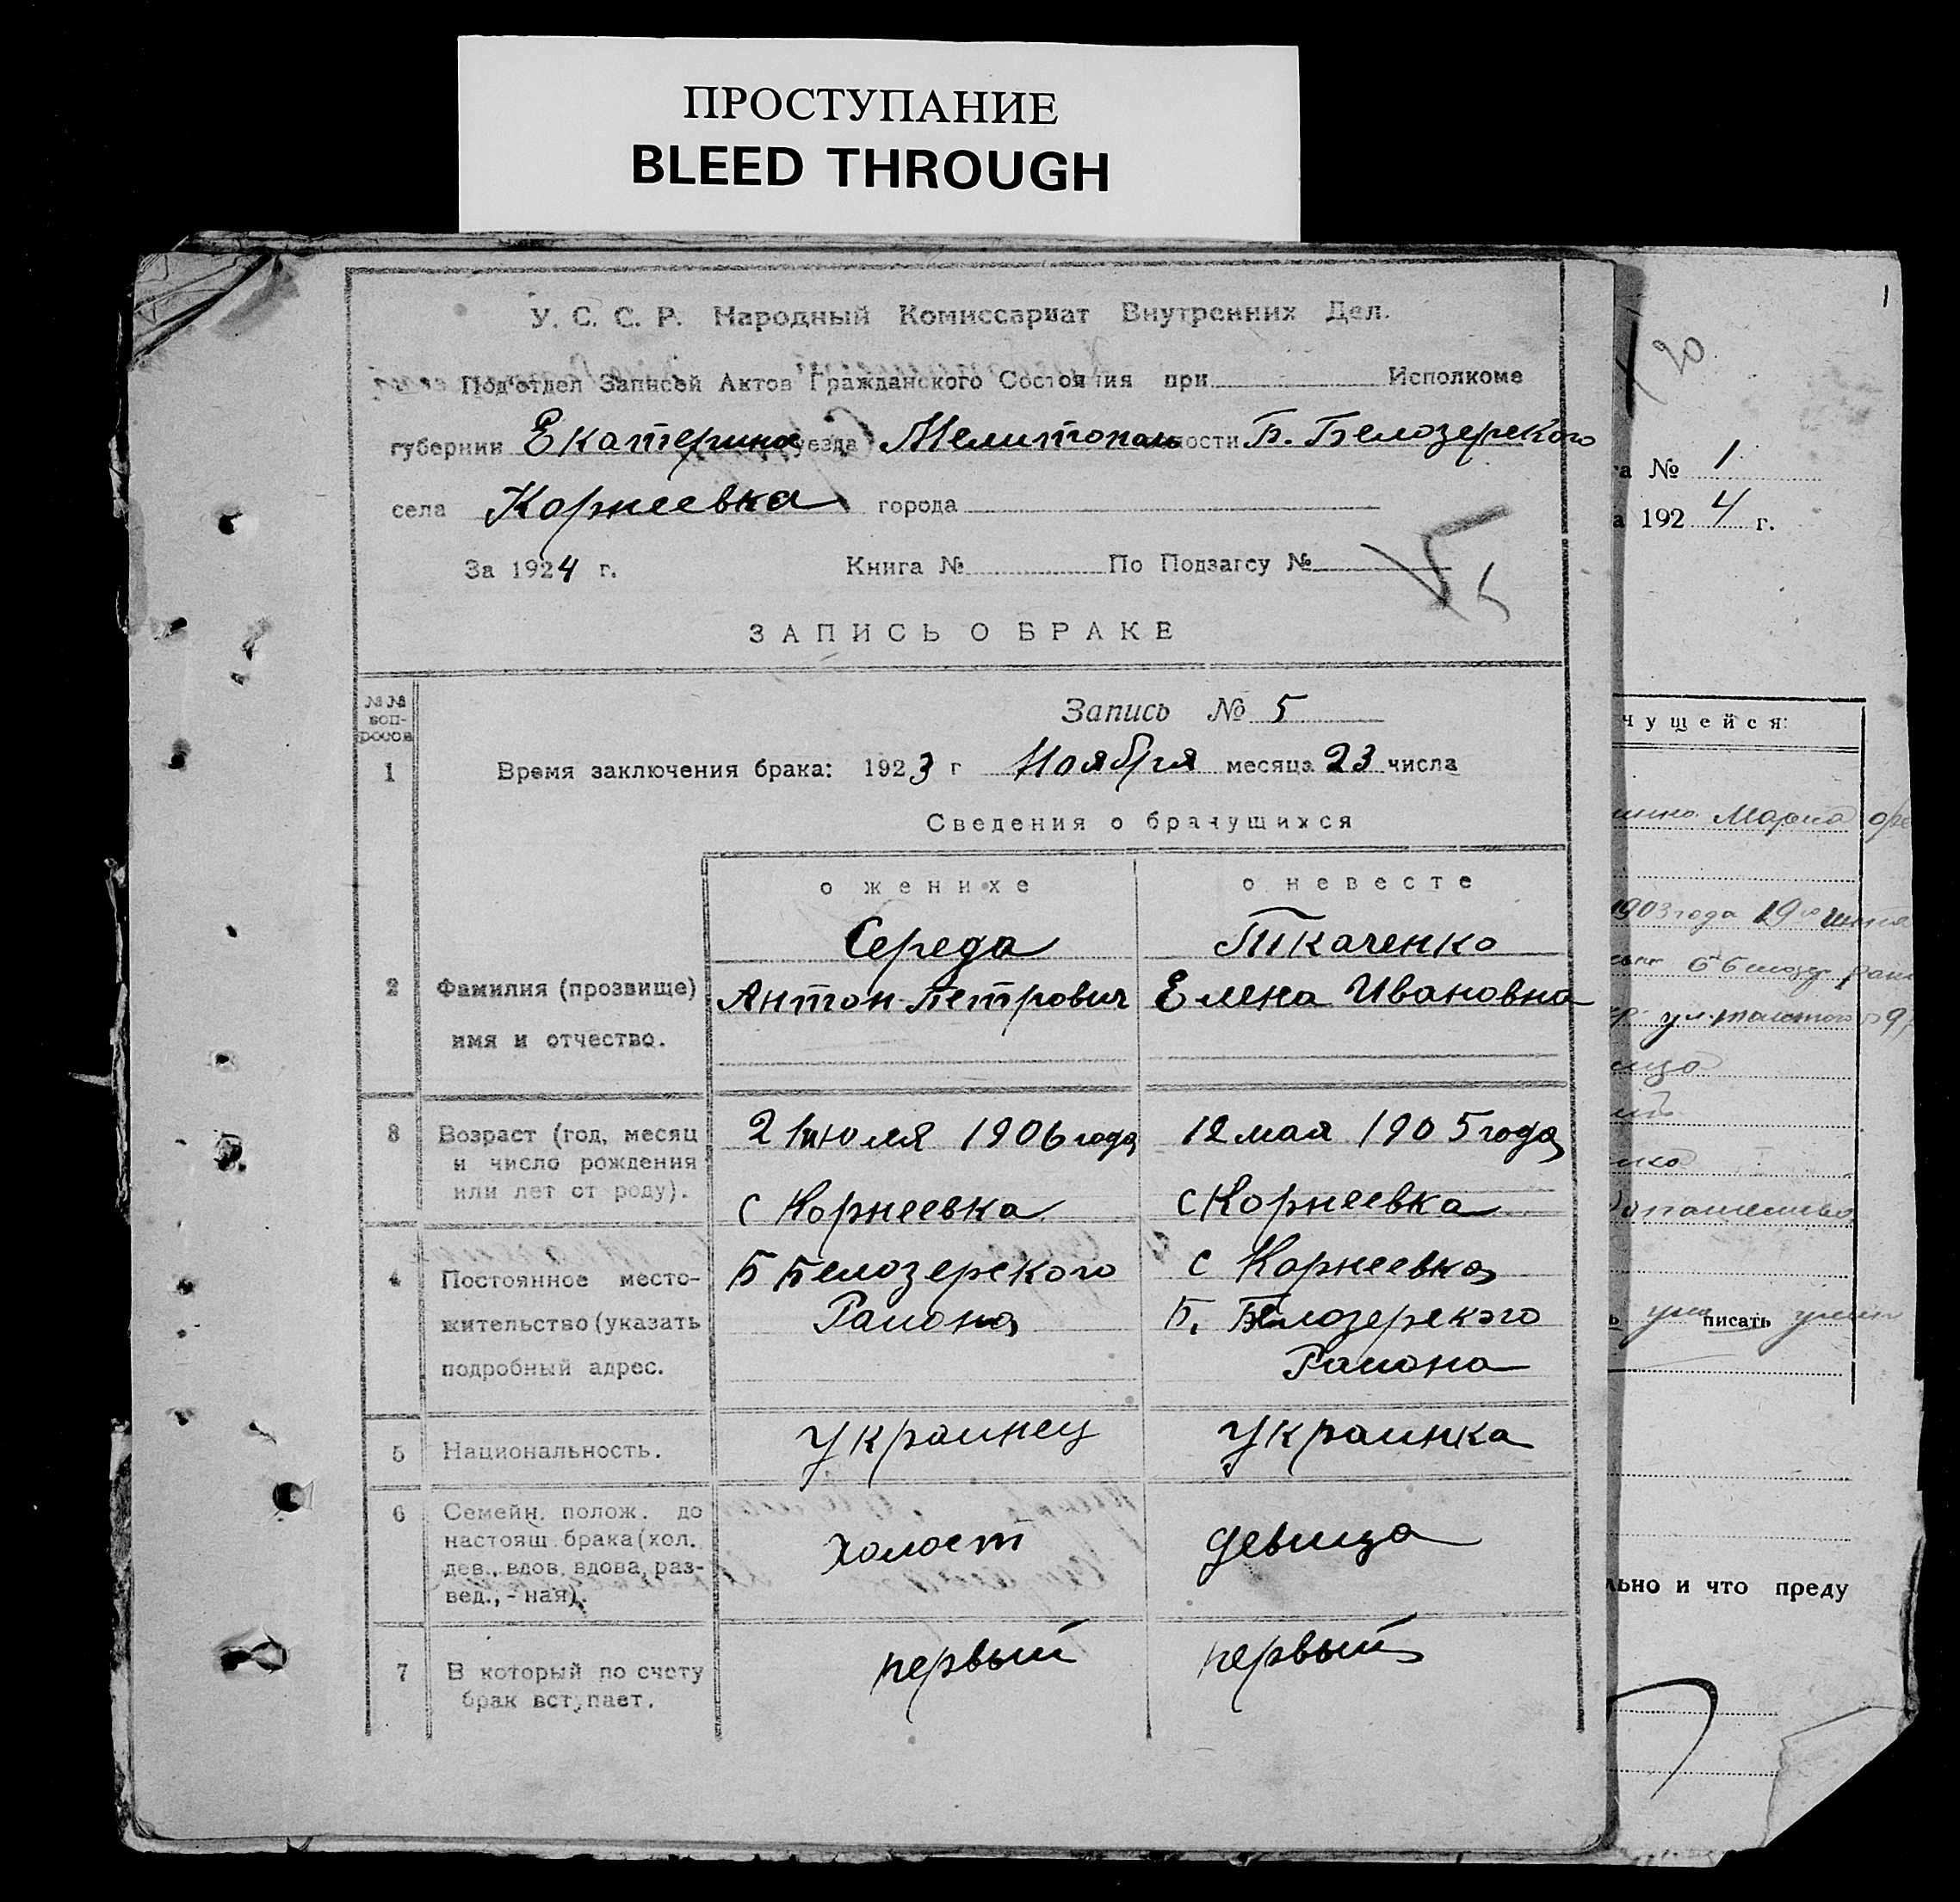 ПРОСТУПАНИЕ
BLEED THROUGH
У. С. С. Р. Народный Комиссариат Внутренних Дел.
Под'отдел Записей Актов Гражданского Состояния при Исполкоме
губернии Екатерина уезда Мелитополь ности Б. Белозерского
села Корнеевка города
За 1924 г. Книга № По Подзагсу № 5
ЗАПИСЬ О БРАКЕ
№№ воп-
росов
Запись № 5
1 Время заключения брака: 1923 г Ноября месяца 23 числа
Сведения о брачущихся
о женихе о невесте
Середа Ткаченко
2 Фамилия (прозвище) Антон Петрович Елена Ивановна
имя и отчество.
3 Возраст (год, месяц 21 июля 1906 года 12 мая 1905 года
и число рождения
или лет от роду). с Корнеевка с Корнеевка
4 Постоянное место- Б Белозерского с Корнеевка
жительство (указать Раиона Б. Белозерского
подробный адрес. Раиона
5 Национальность. Украинец Украинка
6 Семейн. полож. до
настоящ. брака (хол. холост девица
дев., вдов, вдова, раз-
вед., - ная).
7 В который по счету первый первый
брак вступает.
1
20
№ 1
192 4 г.
чущейся:
Мария
1903 года 19го
ул.
писать
льно и что преду